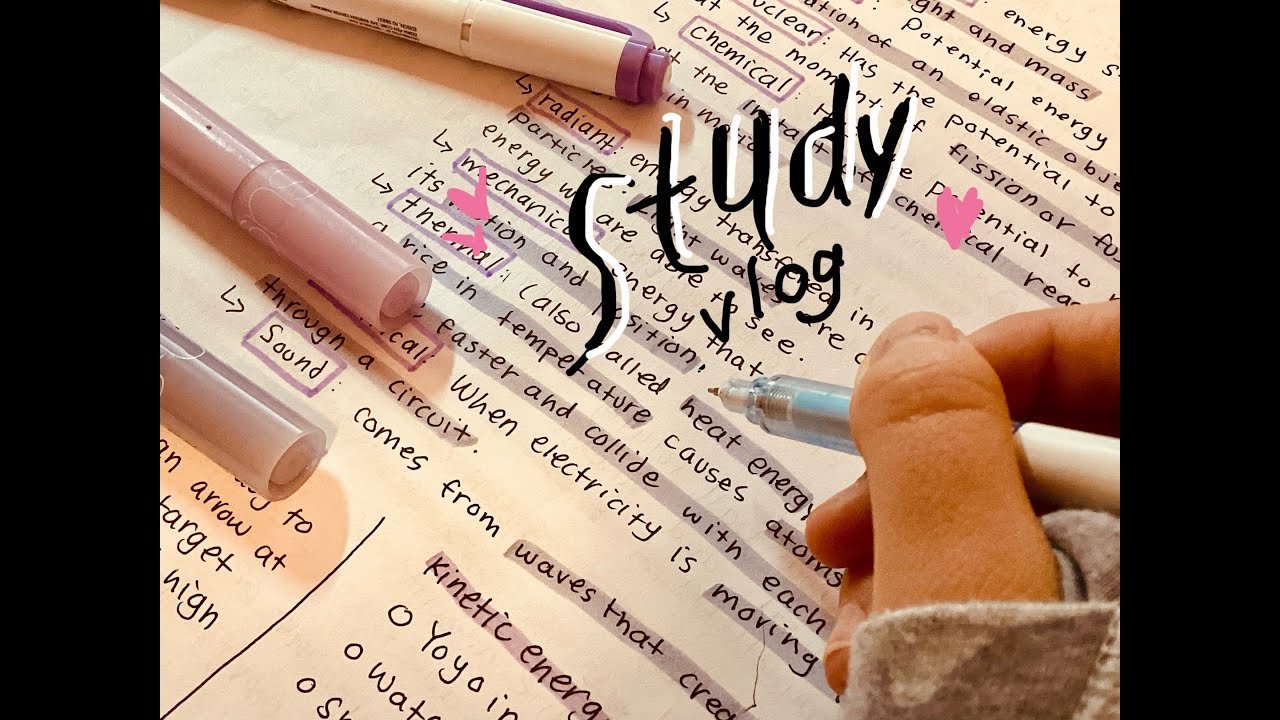 study
vlog
energy s
ght and mass
of an elastic obje
Potential energy
nuclear: Has the potential to
at the moment of fission or fu
↳ chemical: Has the potential to
at the instant of chemical reac
in
↳ radiant: energy transferred in
particles light waves are
energy we are able to see.
↳ mechanical energy that
its motion and position.
↳ thermal: (also called heat energy
a rice in temperature causes atoms
faster and collide with each
cal: When electricity is moving
through a circuit.
↳ Sound: comes from waves that crea
to
an arrow at
target
high
kinetic energ
o Yoyo in
o Wate
o Sh